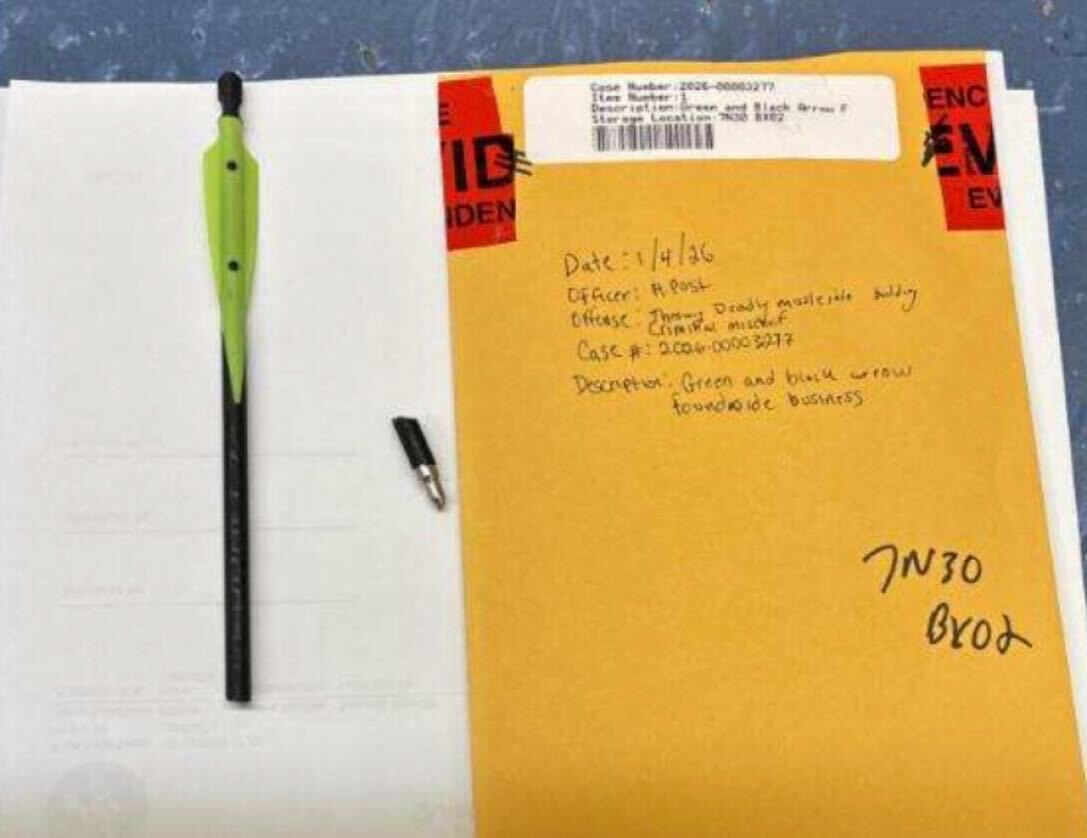 Case Number:2026-00003277
Item Number:1
Description:Green and Black Arrow F
Storage Location:7N30 BX02
E
VID
IDEN
ENC
EV
EV
Date: 1/4/26
Officer: A Post
Offense: Deadly building
Criminal mischief
Case #: 2026-00003277
Description: Green and black arrow
business
7N30
BX02